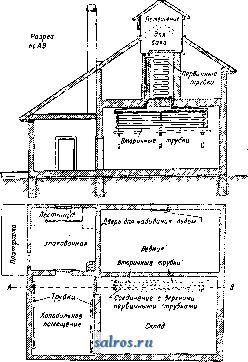 Разрез
по АВ
Отверстие
для
бака
Первичные
трубки
Вторичные трубки
Лестница
Дверь для набивания льдом
Платформа
упаковочная
Ледник
вторичные трубки
А
В
Трубки
Соединение с верхними
первичными трубками
Холодильное
помещение
Склад
salros.ru